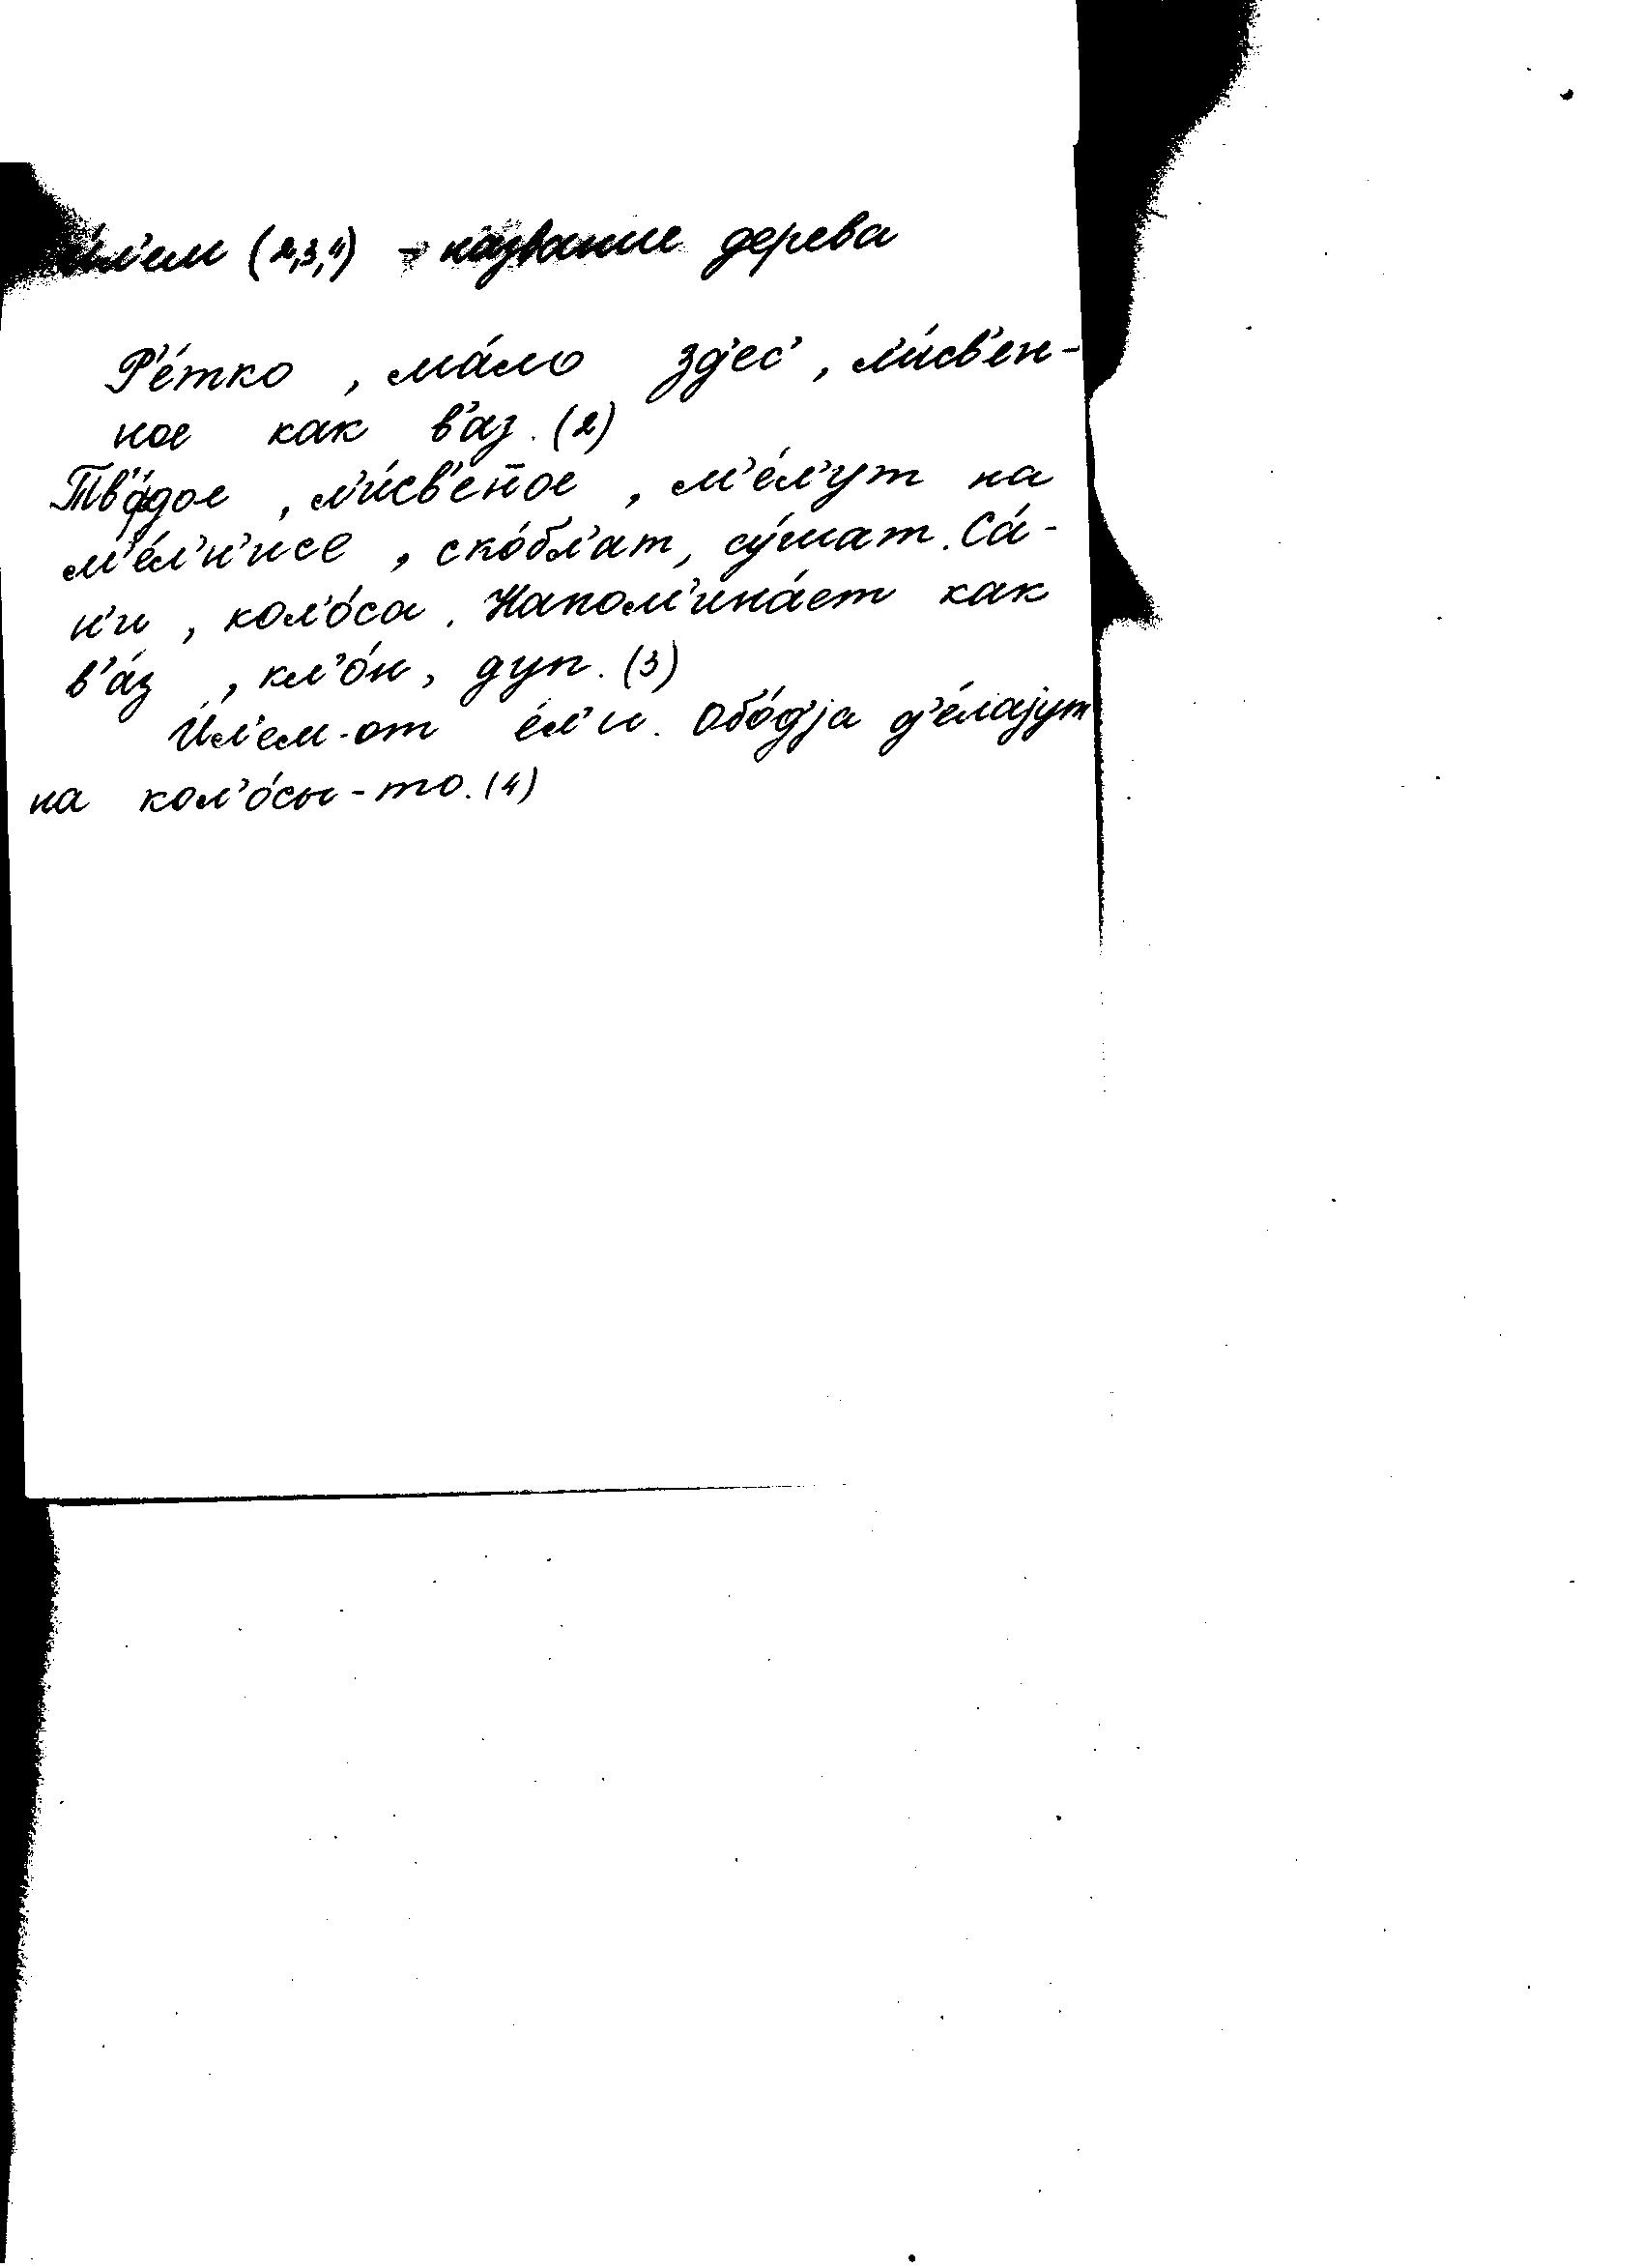 и́л'ем (2,3,4) - название дерева
Р'е́тко, ма́ло зд'ес', л'и́св'ен-
ное как в'аз. (2)
Тв'о́рдое, л'и́св'ен̄ое, м'е́л'ут на
м'е́л'н'исе, ско́бл'ат, су́шат. Са́-
н'и, кол'о́са. Напом'ина́ет как
в'а́з, кл'о́н, дуп. (3)
И́л'ем-от е́л'и. Обо́д'jа д'е́лаjут
на кол'о́сы-то. (4)